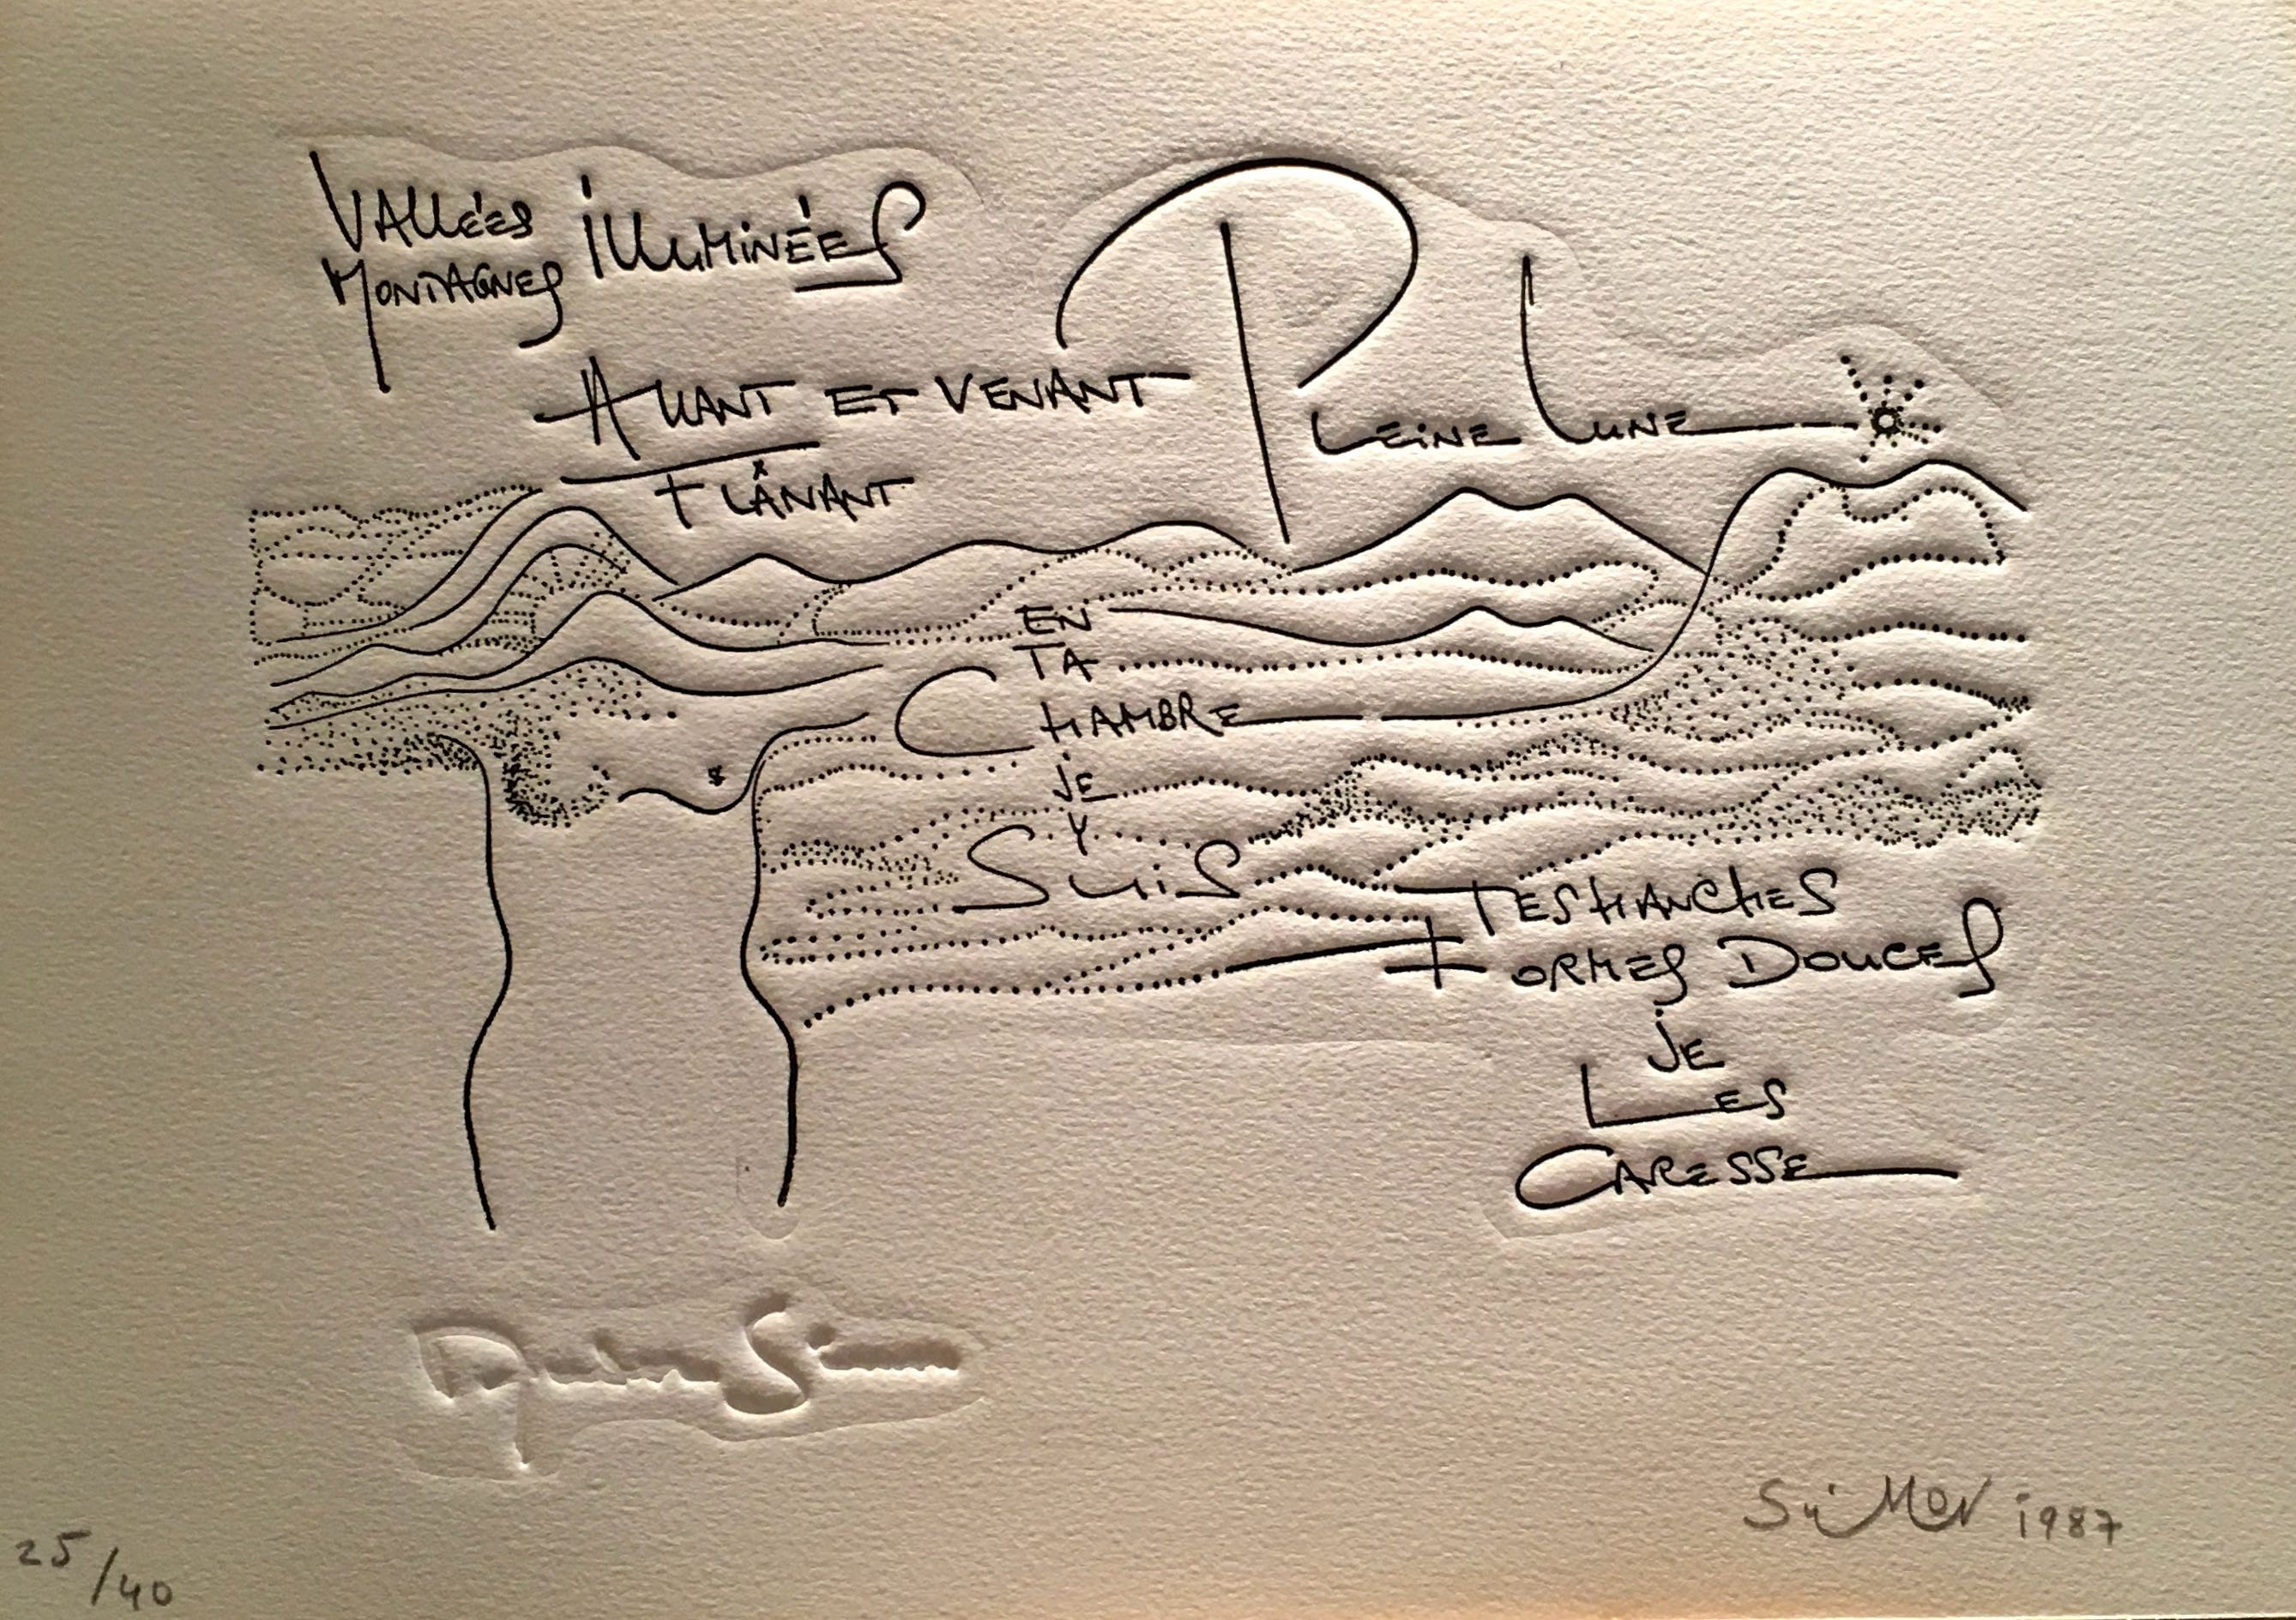 VALLÉES ILLUMINÉES
MONTAGNES
ALLANT ET VENANT
FLÂNANT
PLEINE LUNE
EN
TA
CHAMBRE
JE
Y
SUIS
TES HANCHES
FORMES DOUCES
JE
LES
CARESSE
25/40
SiMON 1987